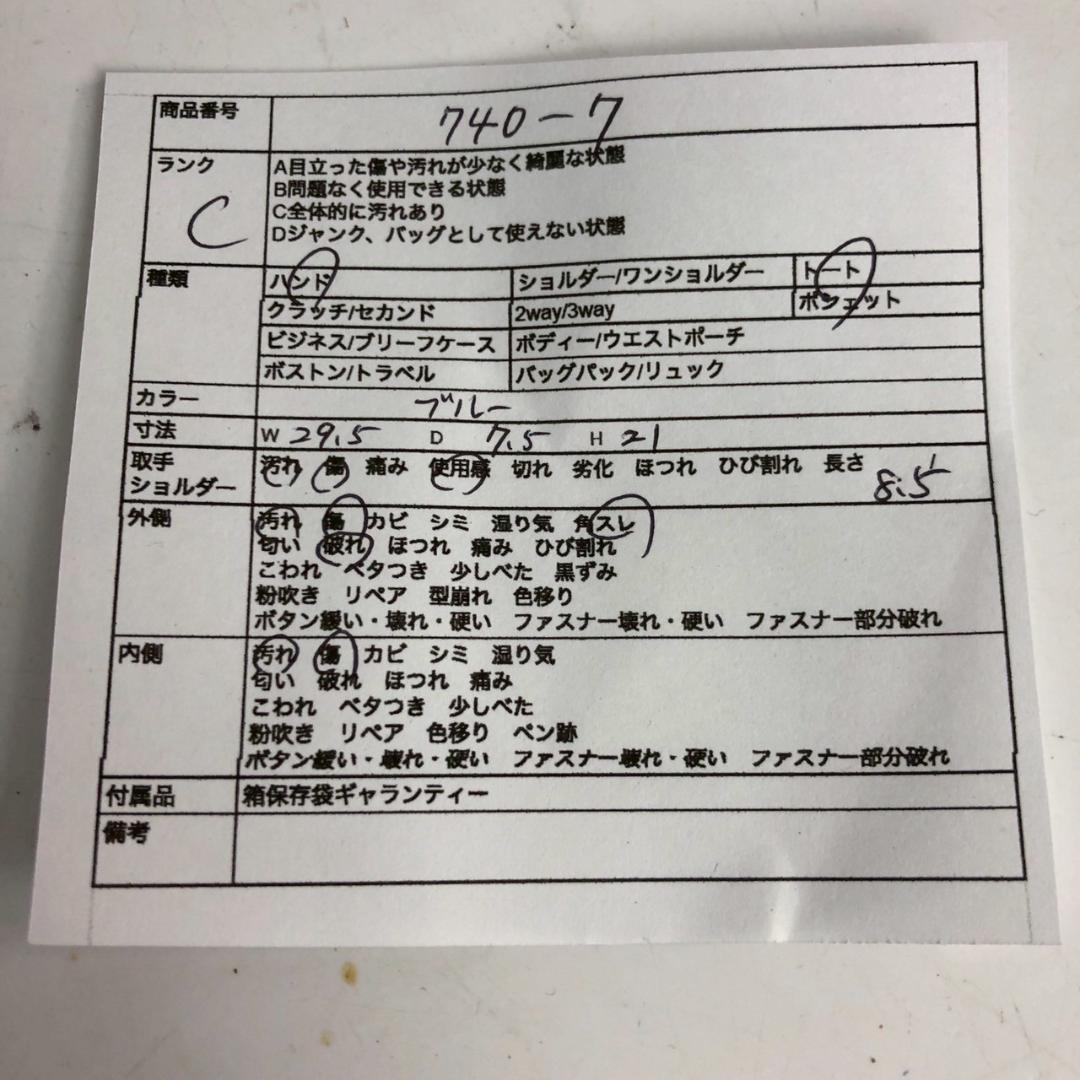 商品番号 740-7
ランク C
A目立った傷や汚れが少なく綺麗な状態
B問題なく使用できる状態
C全体的に汚れあり
Dジャンク、バッグとして使えない状態
種類 ハンド ショルダー/ワンショルダー トート
クラッチ/セカンド 2way/3way ポシェット
ビジネス/ブリーフケース ボディー/ウエストポーチ
ボストン/トラベル バッグパック/リュック
カラー ブルー
寸法 W 29.5 D 7.5 H 21
取手 汚れ 傷 痛み 使用感 切れ 劣化 ほつれ ひび割れ 長さ 8.5
ショルダー
外側 汚れ 傷 カビ シミ 湿り気 角スレ
匂い 破れ ほつれ 痛み ひび割れ
こわれ ベタつき 少しべた 黒ずみ
粉吹き リペア 型崩れ 色移り
ボタン緩い・壊れ・硬い ファスナー壊れ・硬い ファスナー部分破れ
内側 汚れ 傷 カビ シミ 湿り気
匂い 破れ ほつれ 痛み
こわれ ベタつき 少しべた
粉吹き リペア 色移り ペン跡
ボタン緩い・壊れ・硬い ファスナー壊れ・硬い ファスナー部分破れ
付属品 箱保存袋ギャランティー
備考